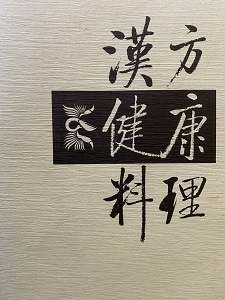 漢方
健康
料理